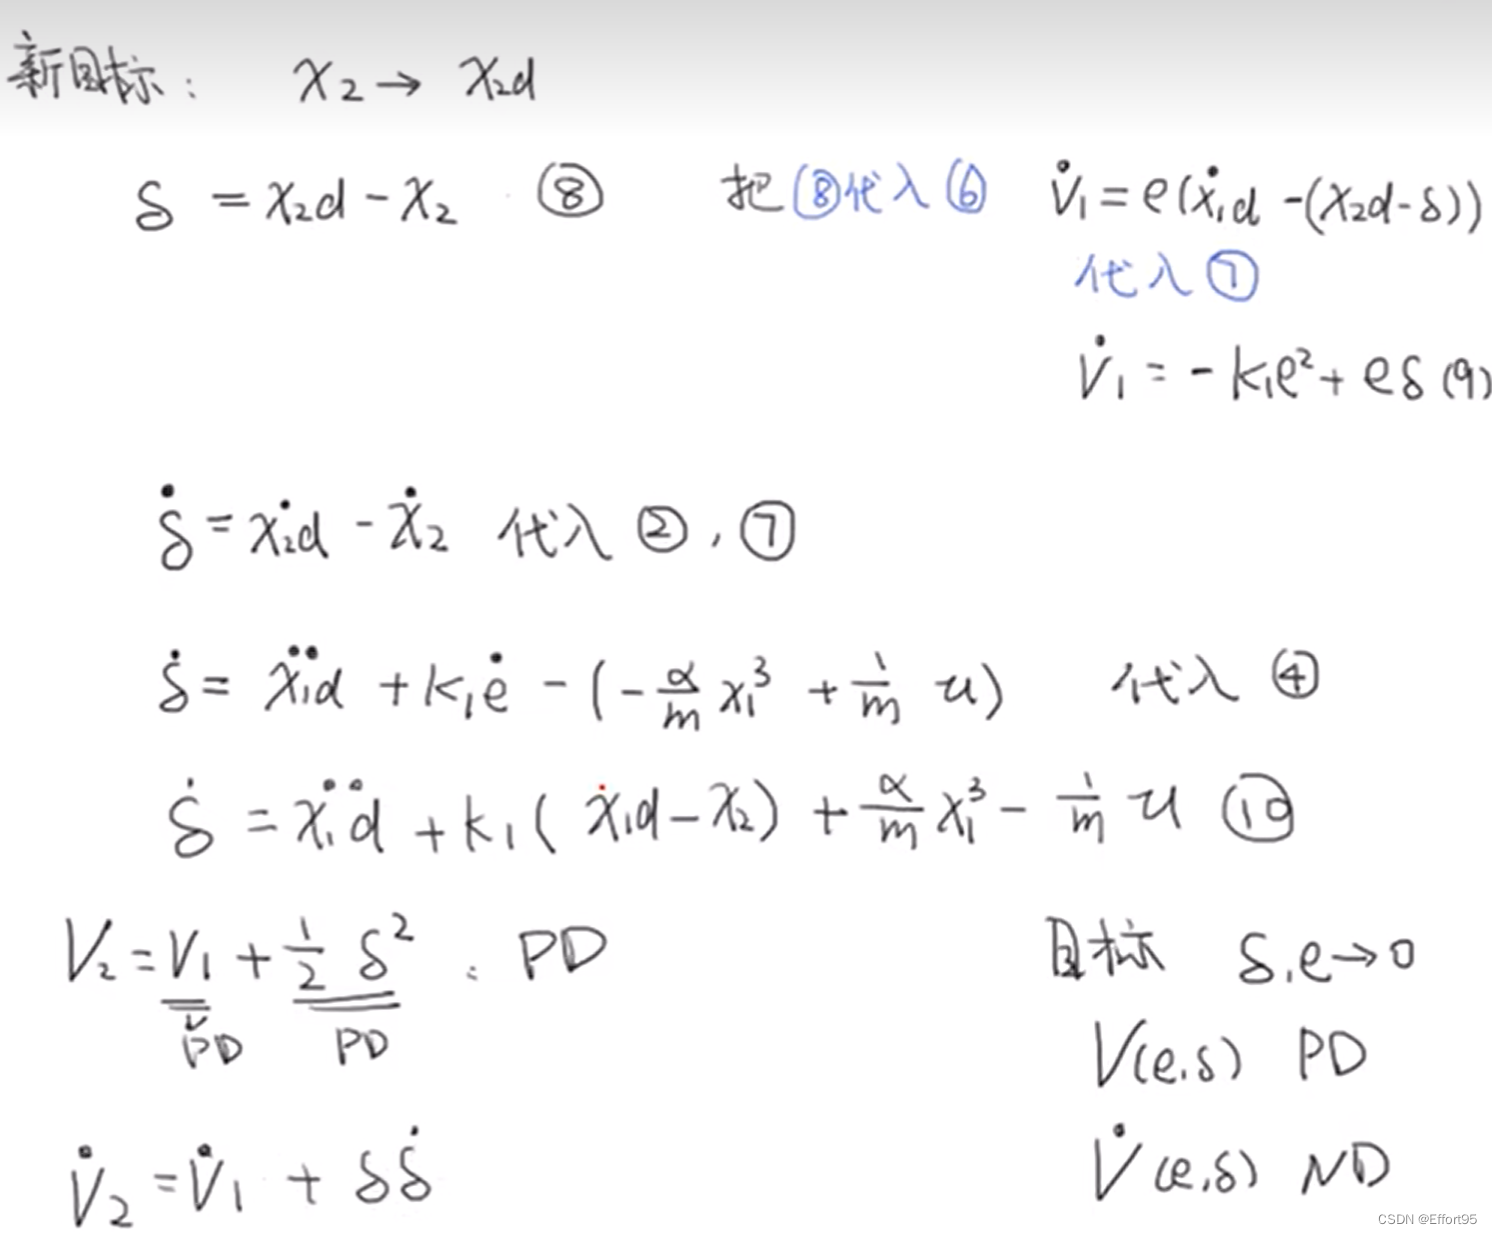 新目标: x₂ → x₂d
δ = x₂d - x₂ ⑧ 把⑧代入⑥ V̇₁ = e(ẋ₁d -(x₂d - δ))
代入⑦
V̇₁ = - k₁e² + eδ (9)
δ̇ = ẋ₂d - ẋ₂ 代入②,⑦
δ̇ = ẍ₁d + k₁ė - (- α/m x₁³ + 1/m u) 代入④
δ̇ = ẍ₁d + k₁( ẋ₁d - x₂) + α/m x₁³ - 1/m u ⑩
V₂ = V₁ + 1/2 δ² : PD 目标 δ,e → 0
PD PD V(e,δ) PD
V̇₂ = V̇₁ + δδ̇ V̇(e,δ) ND
CSDN @Effort95